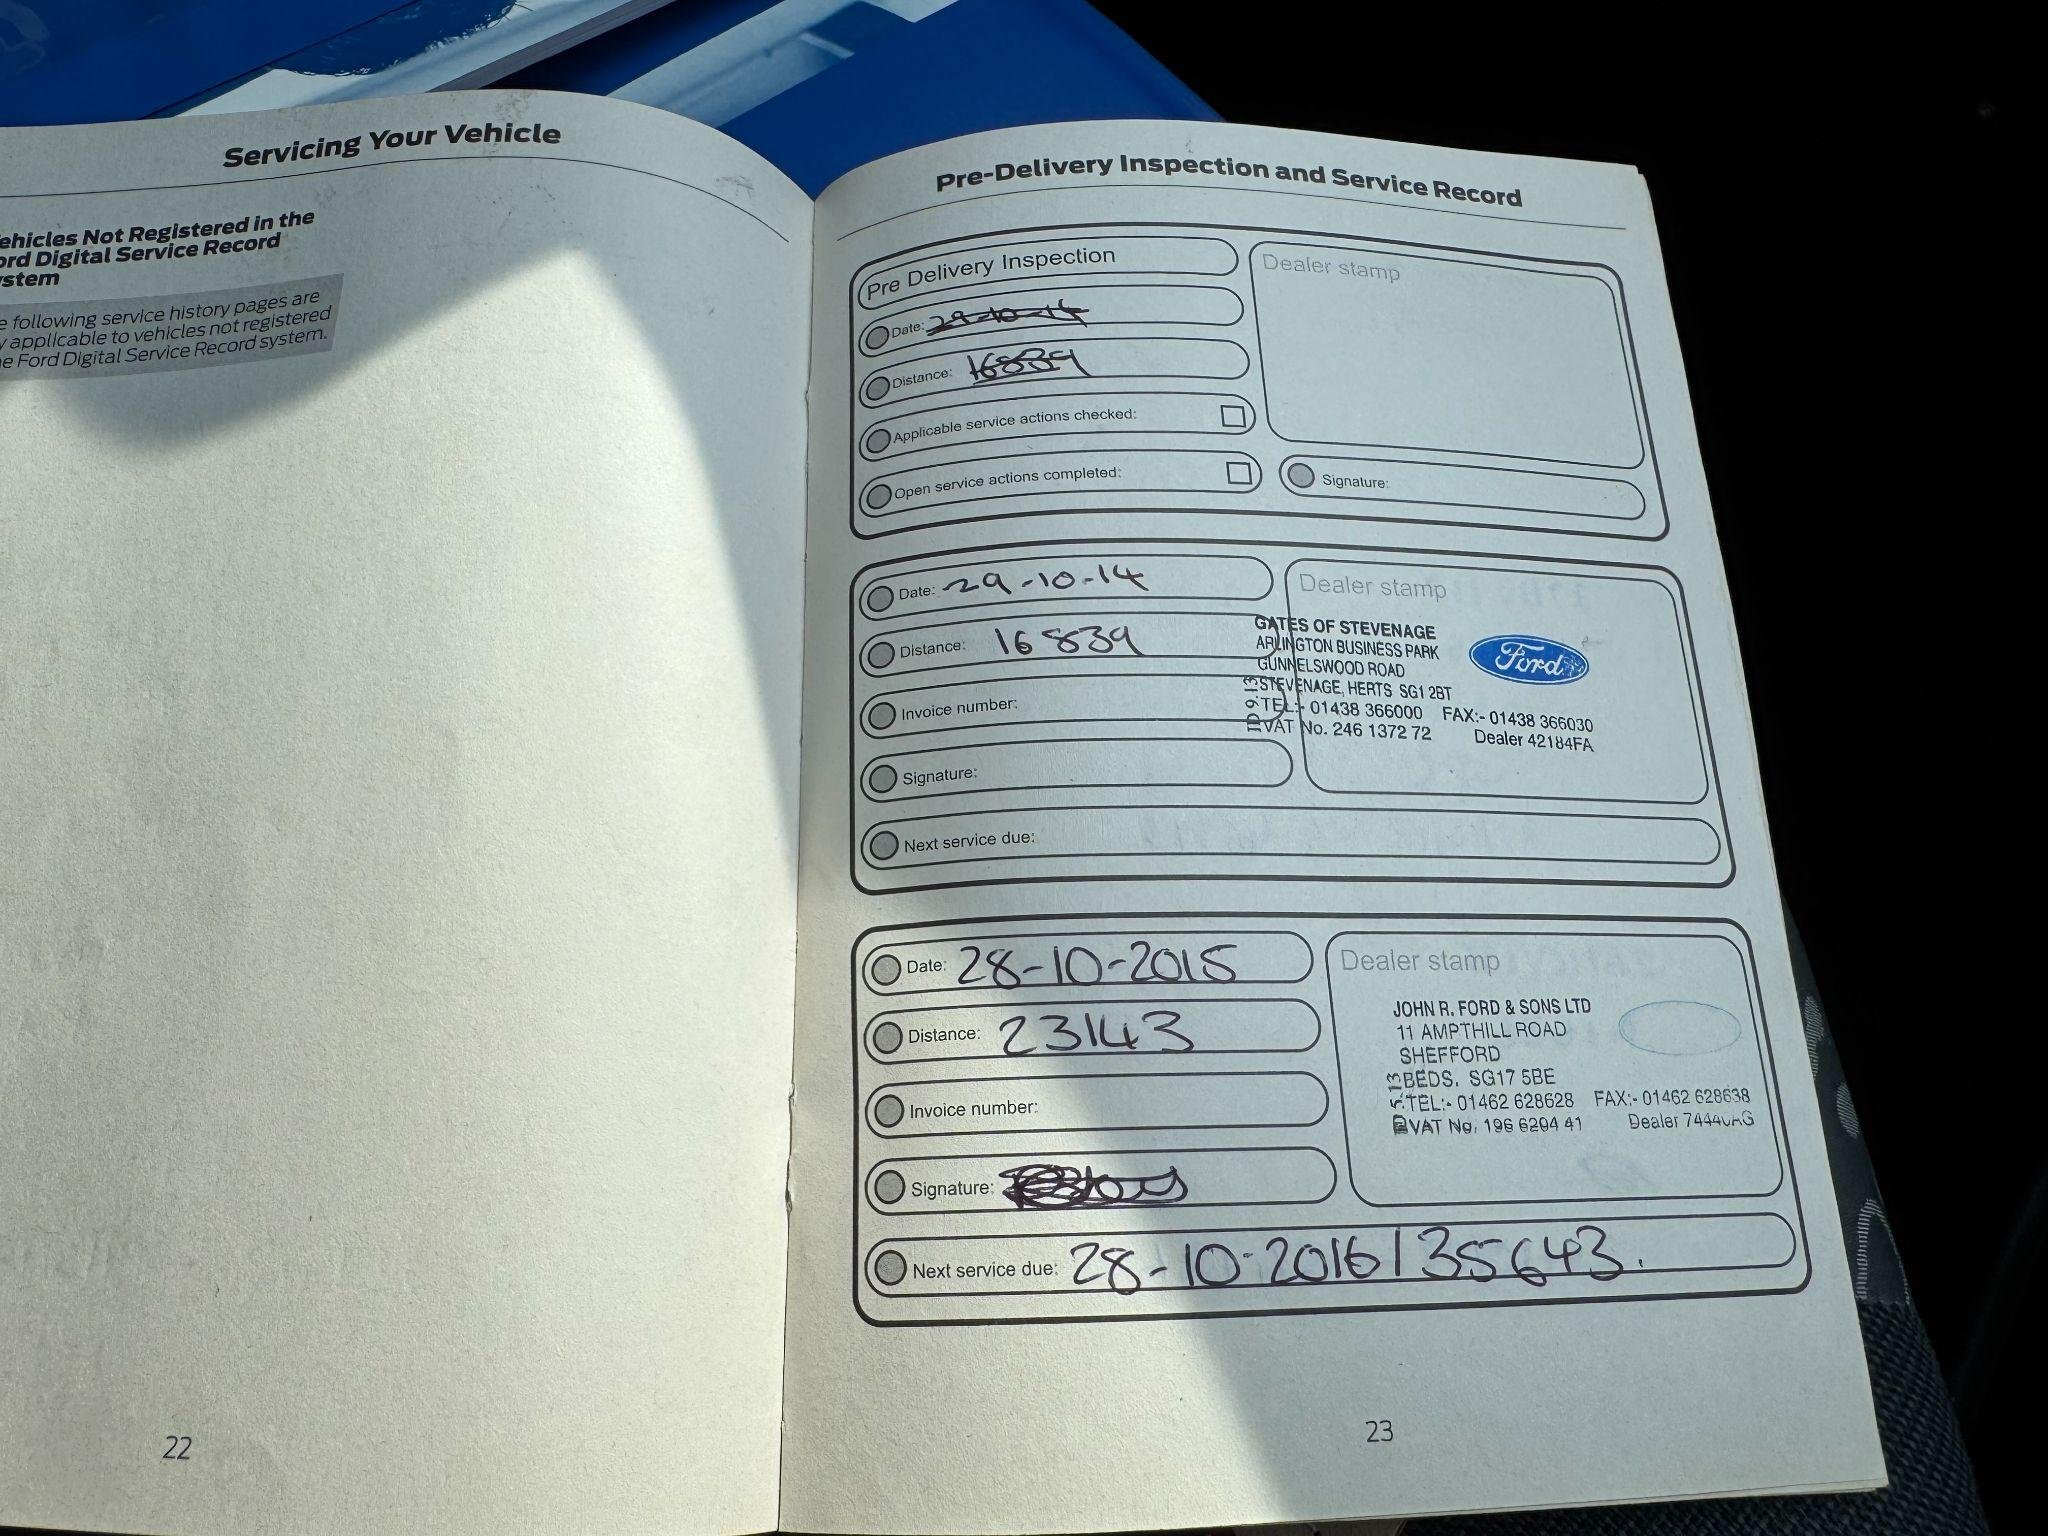 Servicing Your Vehicle
ehicles Not Registered in the
ord Digital Service Record
ystem
e following service history pages are
y applicable to vehicles not registered
e Ford Digital Service Record system.
22
Pre-Delivery Inspection and Service Record
Pre Delivery Inspection
Date: 29-10-14
Distance: 16839
Applicable service actions checked:
Open service actions completed:
Dealer stamp
Signature:
Date: 29-10-14
Distance: 16839
Invoice number:
Signature:
Next service due:
Dealer stamp
GATES OF STEVENAGE
ARLINGTON BUSINESS PARK
GUNNELSWOOD ROAD
STEVENAGE, HERTS SG1 2BT
TEL:- 01438 366000 FAX:- 01438 366030
VAT No. 246 1372 72 Dealer 42184FA
Ford
Date: 28-10-2015
Distance: 23143
Invoice number:
Signature:
Next service due: 28-10-2016 / 35643.
Dealer stamp
JOHN R. FORD & SONS LTD
11 AMPTHILL ROAD
SHEFFORD
BEDS. SG17 5BE
TEL:- 01462 628628 FAX:- 01462 628638
VAT No. 196 6294 41 Dealer
23